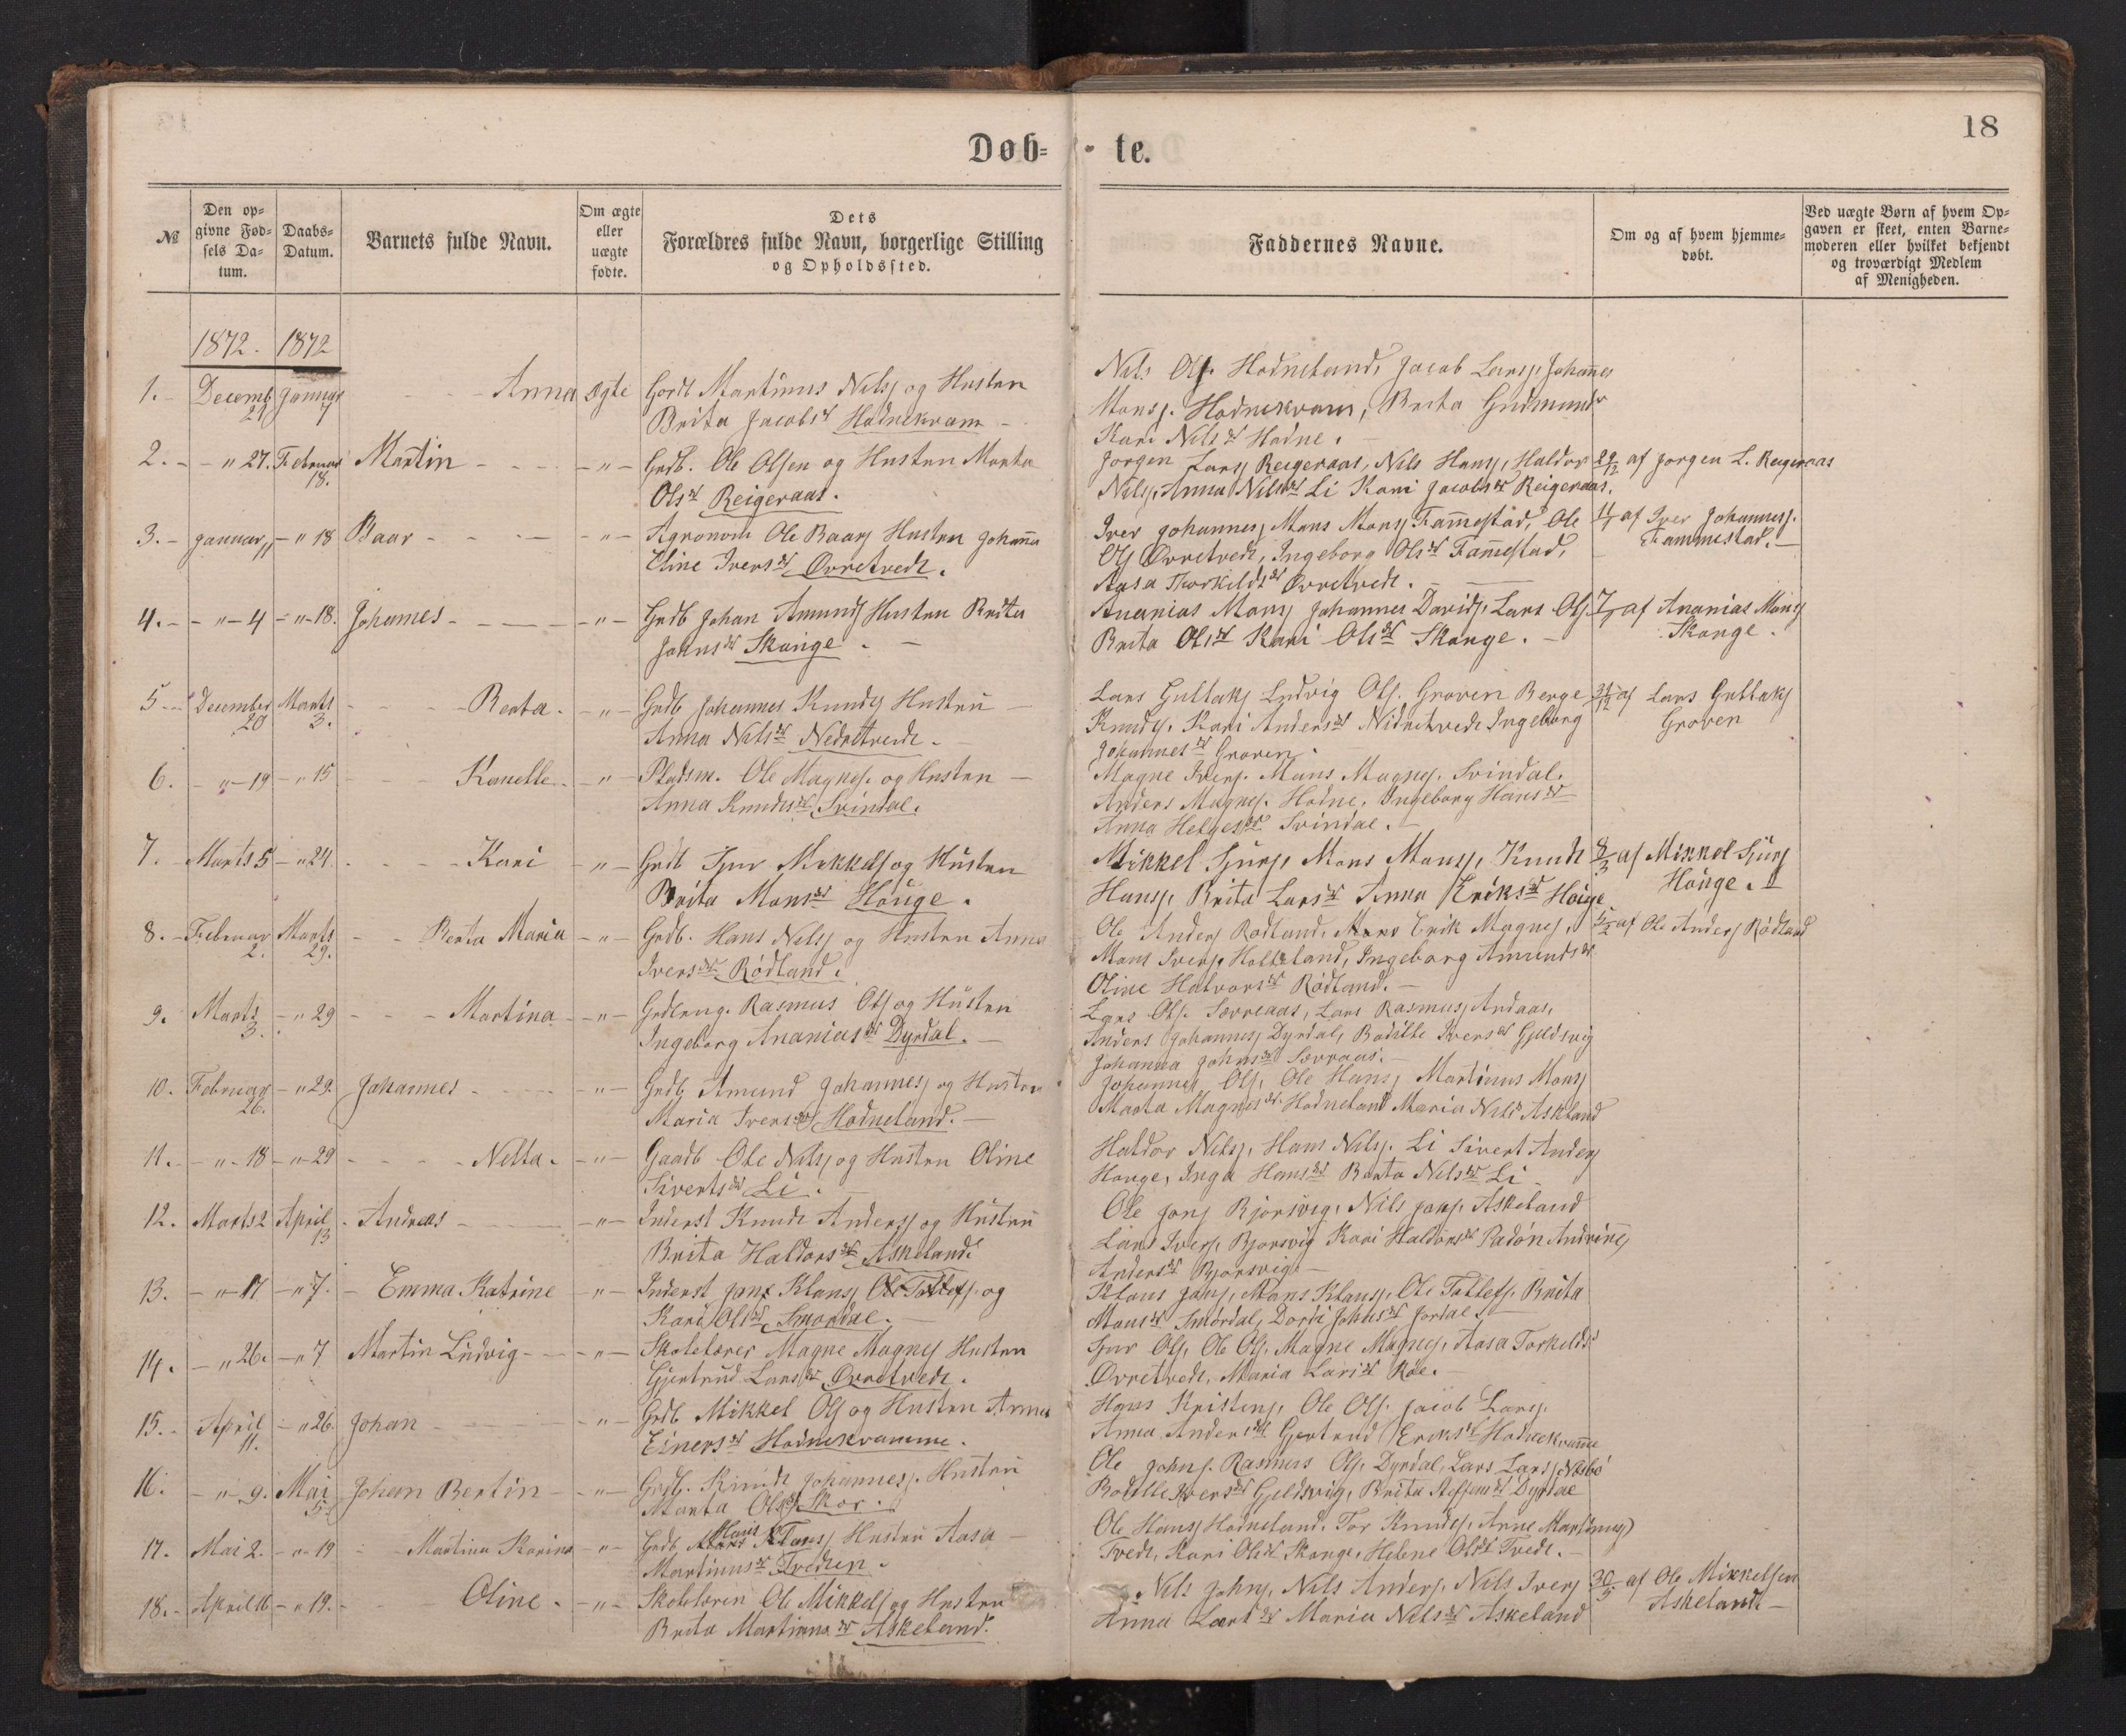 18
Døb= te.
№
Den op=
givne Fød=
sels Da=
tum.
Daabs=
Datum.
Barnets fulde Navn.
Om ægte
eller
uægte
fødte.
Dets
Forældres fulde Navn, borgerlige Stilling
og Opholdssted.
Faddernes Navne.
Om og af hvem hjemme=
døbt.
Ved uægte Børn af hvem Op=
gaven er skeet, enten Barne=
moderen eller hvilket bekjendt
og troværdigt Medlem
af Menigheden.
1872. 1872
1. Decemb Januar Anna Ægte Gardb Martinus Nilsj og Hustru
Brita Jacobsdr Hodnekvam
Nils Olsj. Hodneland, Jacob Larsj, Johannes
Monsj. Hodnekvam, Brita Gudmundsdr
Kari Nilsdr Hodne.
2. " 27. Februar 18. Martin " Grdb. Ole Olsen og Hustru Marta
Olsdr Reigeraas.
Jorgen Larsj Reigeraas, Nils Hansj, Haldor
Nilsj, Anna Nilsdr Li Kari Jacobsdr Reigeraas.
29/12 af Jorgen L. Reigeraas
3. Januar " 18 Baar " Agronom Ole Baarsj Hustru Johanna
Eline Iversdr Øvretvedt.
Iver Johannesj Mons Monsj Fammestad, Ole
Olsj Øvretvedt, Ingeborg Olsdr Fammestad,
Aasa Thorkildsdr Øvretvedt.
af Iver Johannesj.
Fammestad.
4. " 4 " 18. Johannes " Grdb Johan Amundsj Hustru Brita
Johnsdr Skauge.
Ananias Monsj Johannes Davidsj. Lars Olsj.
Brita Olsdr Kari Olsdr Skauge.
7/1 af Ananias Monsj
Skauge.
5 December 20 Marts 3. Berta. " Grdb Johannes Knudsj Hustru
Anna Nilsdr Nedretvedt.
Lars Guttaksj Ludvig Olsj. Groven Berge
Knudsj. Kari Andersdr Nidretvedt Ingeborg
Johannesdr Groven.
af Lars Guttaksj
Groven
6. " 19 " 15 Kanelle. " Pladsm. Ole Magnesj. og Hustru
Anna Knudsdr Svindal.
Magne Iversj. Mons Magnesj. Svindal.
Anders Magnesj. Hodne, Ingeborg Hansdr
Anna Helgesdr Svindal.
7. Marts 5 " 24 Kari " Grdb Sjur Mikkelsj og Hustru
Brita Monsdr Hauge.
Mikkel Sjursj, Mons Monsj, Knud
Hansj, Brita Larsdr Anna Eriksdr Hauge
8/3 af Mikkel Sjursj
Hauge.
8. Februar 2. Marts 29. Berta Maria " Grdb. Hans Nilsj og Hustru Anna
Iversdr Rødland.
Ole Andersj Rødland, Erik Magnesj,
Mons Iversj, Holteland, Ingeborg Amundsdr
Oline Halvorsdr Rødland.
af Ole Andersj Rødland
9. Marts 3. " 29 Martina " Rasmus Olsj og Hustru
Ingeborg Ananiasdr Dyrdal.
Lars Olsj. Særvraas, Lars Rasmusj Andaas,
Anders Johannesj Dyrdal, Bodille Iversdr Gjeldsvig
Johanna Johnsdr Særvraas.
10. Februar 26. " 29. Johannes " Grdb Amund Johannesj og Hustru
Maria Iversdr Hodneland.
Johannes Olsj. Ole Hansj, Martinus Monsj
Marta Magnesdr. Hodneland Maria Nilsdr Askeland
11. " 18 " 29 Nilla. " Gaardb Ole Nilsj og Hustru Oline
Sivertsdr Li.
Haldor Nilsj, Hans Nilsj. Li Sivert Andersj
Hauge, Inga Hansdr Berta Nilsdr Li
12. Marts 2 April 13 Andreas " Inderst Knud Andersj og Hustru
Brita Haldorsdr Askeland
Ole Jonsj Bjorsvig, Nils Jonsj. Askeland
Lars Iversj, Bjorsvig Kari Haldorsdr Andrine
Andersdr Bjorsvig
13. " 17 " 7. Emma Katrine " Inderst Jons Klausj og
Kari Olsdr Smørdal.
Klaus Jonsj, Mons Klausj, Ole Tollefsj. Brita
Monsdr Smørdal, Dorte Johnsdr Jordal.
14. " 26. " 7 Martin Ludvig " Skolelærer Magne Magnesj Hustru
Gjertrud Larsdr Øvretvedt.
Sjur Olsj, Ole Olsj. Magne Magnesj, Aasa Torkildsdr
Øvretvedt, Maria Larsdr Røe.
15. April 11. " 26 Johan " Grdb Mikkel Olsj og Hustru Anna
Einersdr Hodnekvamme.
Hans Kristensj, Ole Olsj. Jacob Larsj.
Anna Andersdr Gjertrud Eriksdr Hodnekvamme
16. " 9. Mai 5 Johan Bertin " Grdb. Knud Johannesj. Hustru
Marta Olsdr Skor.
Ole Johnsj. Rasmus Olsj, Dyrdal, Lars Larsj Næsbø
Bodille Iversdr Gjeldsvig, Brita Steffensdr Dyrdal
17. Mai 2. " 19 Martina Karina " Grdb Hansj Hustru Aasa
Martinusdr Tvedten.
Ole Hansj Hodneland. Tor Knudsj. Arne Martinusj
Tvedt, Kari Olsdr Skauge, Helene Olsdr Tvedt.
18. April 16 " 19. Oline " Skolelærer Ole Mikkelsj og Hustru
Brita Martinusdr Askeland.
Nils Johnsj, Nils Andersj. Nils Iversj
Anna Larsdr Maria Nilsdr Askeland
af Ole Mikkelsen
Askeland